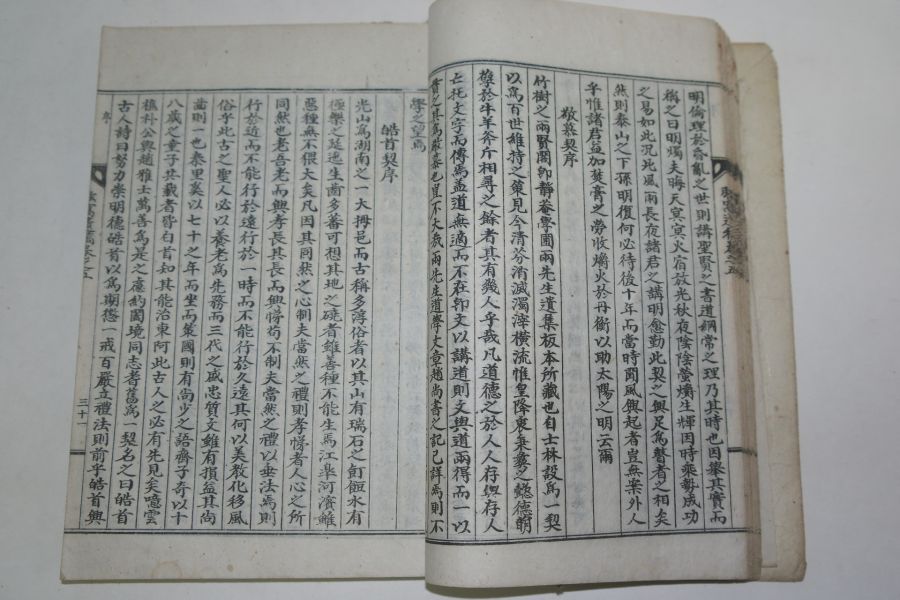 明倫理於昏亂之世則講聖賢之書道綱常之理乃其時也因擧其實而
稱之曰明燭夫晦天冥火宿放光秋夜陰陰螢爝生輝因時乘勢成功
之易如此沉此風雨長夜諸君之講明愈勤此契之興足爲瞽者之相矣
然則泰山之下孫明復何必待後十年而當時聞風興起者豈無案外人
乎惟諸君益加焚膏之勞收爝火於丹衡以助太陽之明云爾
敬慕契序
竹樹之兩賢閣卽靜菴學圃兩先生遺集板本所藏也自士林設爲一契
以爲百世維持之策見今清芬消滅濁滓橫流惟皇降衷秉彝之懿德萌
蘖於牛羊斧斤相尋之餘者其有幾人乎哉凡道德之於人人存與存人
亡托文字而傳焉盖道無適而不在卽文以講道則文與道兩得而一以
貫之其爲敬慕也豈不大哉兩先生道學文章趙尙書之記已詳焉則不
學之望焉
皓首契序
光山爲湖南之一大拇邑而古稱多淳俗者以其山有瑞石之飣餖水有
極樂之延迤生齒多蕃可想其地之磽者雖善種不能生焉江澤河濱雖
惡種無不偎大矣凡因其同然之心制夫當然之禮則孝悌者人心之所
同然也老吾老而興孝長其長而興悌苟不制夫當然之禮以垂法焉則
行於近而不能行於遠行於一時而不能行於久遠其何以美敎化移風
俗乎此古之聖人必以養老爲先務而三代之盛忠質文雖有損益其尙
齒則一也秦里奚以七十之年而坐而策國則有尙少之語齊子奇以十
八歲之童子共載者皆白首知其能治東阿此古人之必有先見矣噫雲
樵朴公與趙雅士萬善爲是之慮約國境同志者舊爲一契名之曰皓首
古人詩曰努力崇明德皓首以爲期懲一戒百嚴立禮法則前乎皓首興
序
三十一